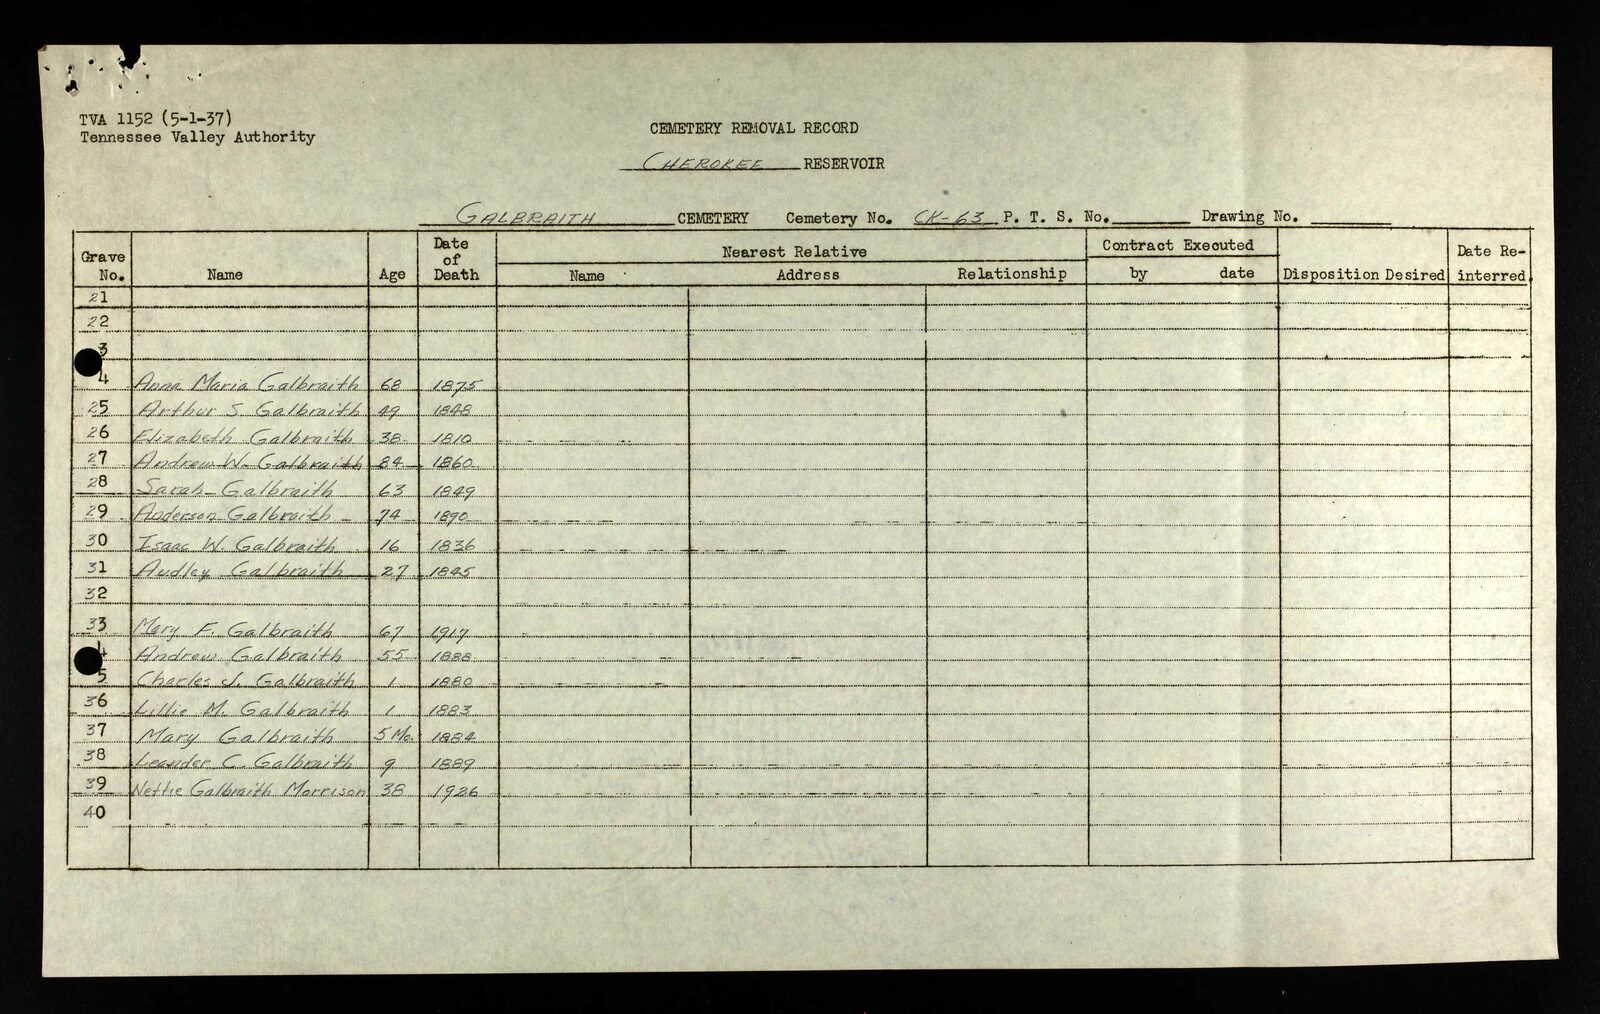 TVA 1152 (5-1-37)
Tennessee Valley Authority
CEMETERY REMOVAL RECORD
CHEROKEE RESERVOIR
GALBRAITH CEMETERY Cemetery No. CK-63 P. T. S. No. Drawing No.
Grave No. Name Age Date of Death Nearest Relative Name Address Relationship Contract Executed by date Disposition Desired Date Re-interred
21
22
3
4 Anna Maria Galbraith 68 1875
25 Arthur S. Galbraith 49 1848
26 Elizabeth Galbraith 38 1810
27 Andrew W. Galbraith 84 1860
28 Sarah Galbraith 63 1849
29 Anderson Galbraith 74 1890
30 Isaac W. Galbraith 16 1836
31 Audley Galbraith 27 1845
32
33 Mary F. Galbraith 67 1917
4 Andrew Galbraith 55 1888
5 Charles J. Galbraith 1 1880
36 Lillie M. Galbraith 1 1883
37 Mary Galbraith 5 Mo. 1884
38 Leander C. Galbraith 9 1889
39 Nettie Galbraith Morrison 38 1926
40